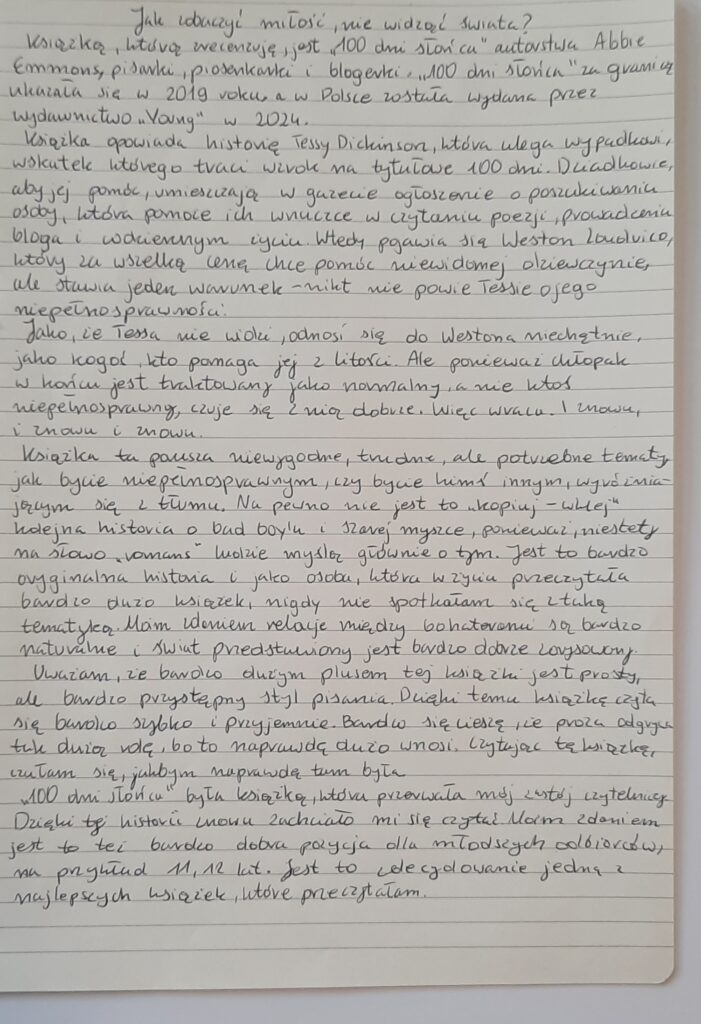 Jak zobaczyć miłość, nie widząc świata?
Książką, którą recenzuję, jest "100 dni słońca" autorstwa Abbie
Emmons, pisarki, piosenkarki i blogerki. "100 dni słońca" za granicą
ukazała się w 2019 roku, a w Polsce została wydana przez
wydawnictwo "Young" w 2024.
Książka opowiada historię Tessy Dickinson, która ulega wypadkowi,
wskutek którego traci wzrok na tytułowe 100 dni. Dziadkowie,
aby jej pomóc, umieszczają w gazecie ogłoszenie o poszukiwaniu
osoby, która pomoże ich wnuczce w czytaniu poezji, prowadzeniu
bloga i codziennym życiu. Wtedy pojawia się Weston Loudvico,
który za wszelką cenę chce pomóc niewidomej dziewczynie,
ale stawia jeden warunek - nikt nie powie Tessie o jego
niepełnosprawności.
Jako, że Tessa nie widzi, odnosi się do Westona niechętnie,
jako kogoś, kto pomaga jej z litości. Ale ponieważ chłopak
w końcu jest traktowany jako normalny, a nie ktoś
niepełnosprawny, czuje się z nią dobrze. Więc wraca. I znowu,
i znowu i znowu.
Książka ta porusza niewygodne, trudne, ale potrzebne tematy
jak bycie niepełnosprawnym, czy bycie kimś innym, wyróżnia-
jącym się z tłumu. Na pewno nie jest to "kopiuj - wklej"
kolejna historia o bad boy'u i szarej myszce, ponieważ, niestety
na słowo "romans" ludzie myślą głównie o tym. Jest to bardzo
oryginalna historia i jako osoba, która w życiu przeczytała
bardzo dużo książek, nigdy nie spotkałam się z taką
tematyką. Moim zdaniem relacje między bohaterami są bardzo
naturalne i świat przedstawiony jest bardzo dobrze zarysowany.
Uważam, że bardzo dużym plusem tej książki jest prosty,
ale bardzo przystępny styl pisania. Dzięki temu książkę czyta
się bardzo szybko i przyjemnie. Bardzo się cieszę, że proza odgrywa
tak dużą rolę, bo to naprawdę dużo wnosi. Czytając tę książkę,
czułam się, jakbym naprawdę tam była
"100 dni słońca" była książką, która przerwała mój zastój czytelniczy
Dzięki tej historii znowu zachciało mi się czytać. Moim zdaniem
jest to też bardzo dobra pozycja dla młodszych odbiorców,
na przykład 11, 12 lat. Jest to zdecydowanie jedną z
najlepszych książek, które przeczytałam.